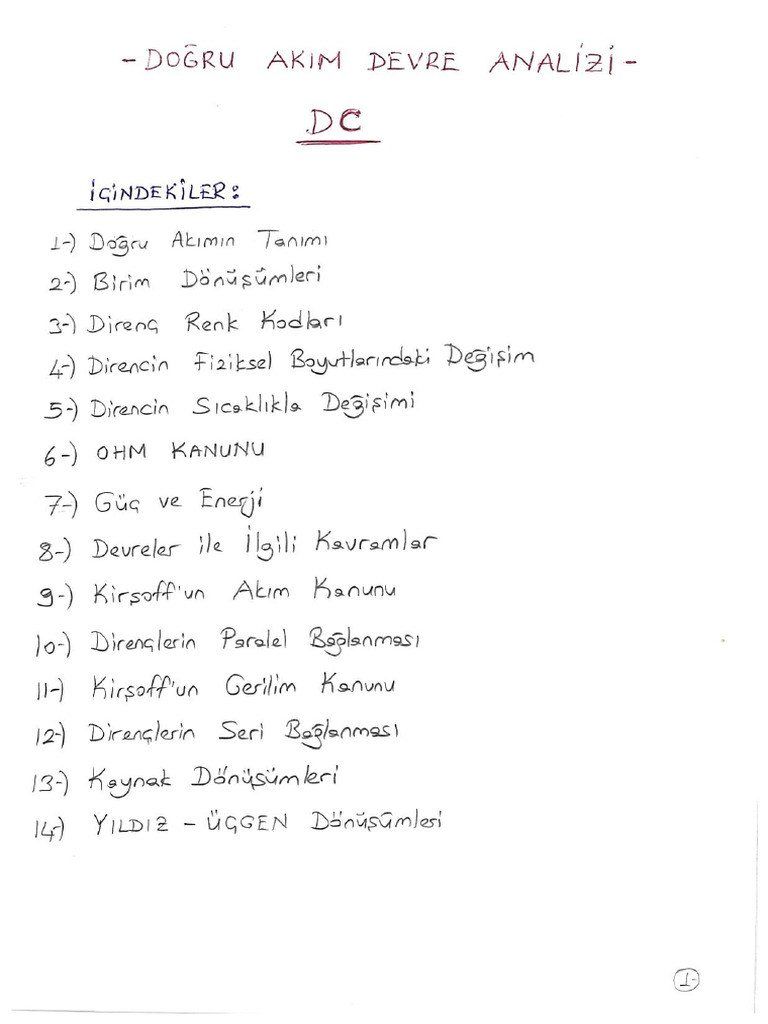 - DOĞRU AKIM DEVRE ANALİZİ -
DC
İÇİNDEKİLER:
1-) Doğru Akımın Tanımı
2-) Birim Dönüşümleri
3-) Direnç Renk Kodları
4-) Direncin Fiziksel Boyutlarındaki Değişim
5-) Direncin Sıcaklıkla Değişimi
6-) OHM KANUNU
7-) Güç ve Enerji
8-) Devreler ile İlgili Kavramlar
9-) Kirşoff'un Akım Kanunu
10-) Dirençlerin Paralel Bağlanması
11-) Kirşoff'un Gerilim Kanunu
12-) Dirençlerin Seri Bağlanması
13-) Kaynak Dönüşümleri
14-) YILDIZ - ÜÇGEN Dönüşümleri
1-